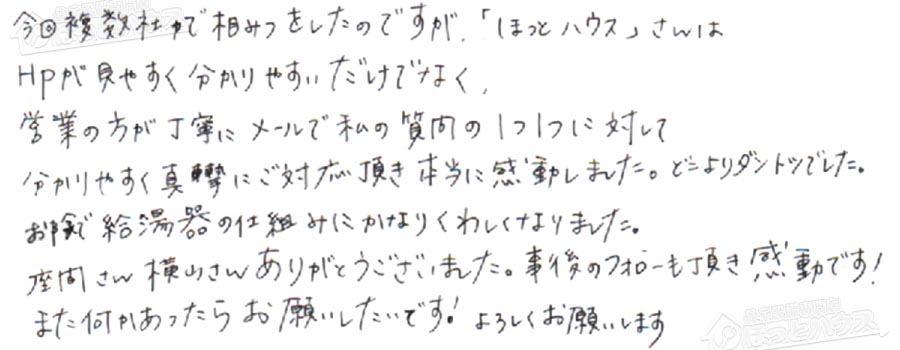 今回複数社で相みつをしたのですが、「ほっとハウス」さんは
Hpが見やすく分かりやすいだけでなく、
営業の方が丁寧にメールで私の質問の1つ1つに対して
分かりやすく真摯にご対応頂き本当に感動しました。どこよりダントツでした。
お陰で給湯器の仕組みにかなりくわしくなりました。
座間さん横山さんありがとうございました。事後のフォローも頂き感動です!
また何かあったらお願いしたいです! よろしくお願いします
ほっとハウス